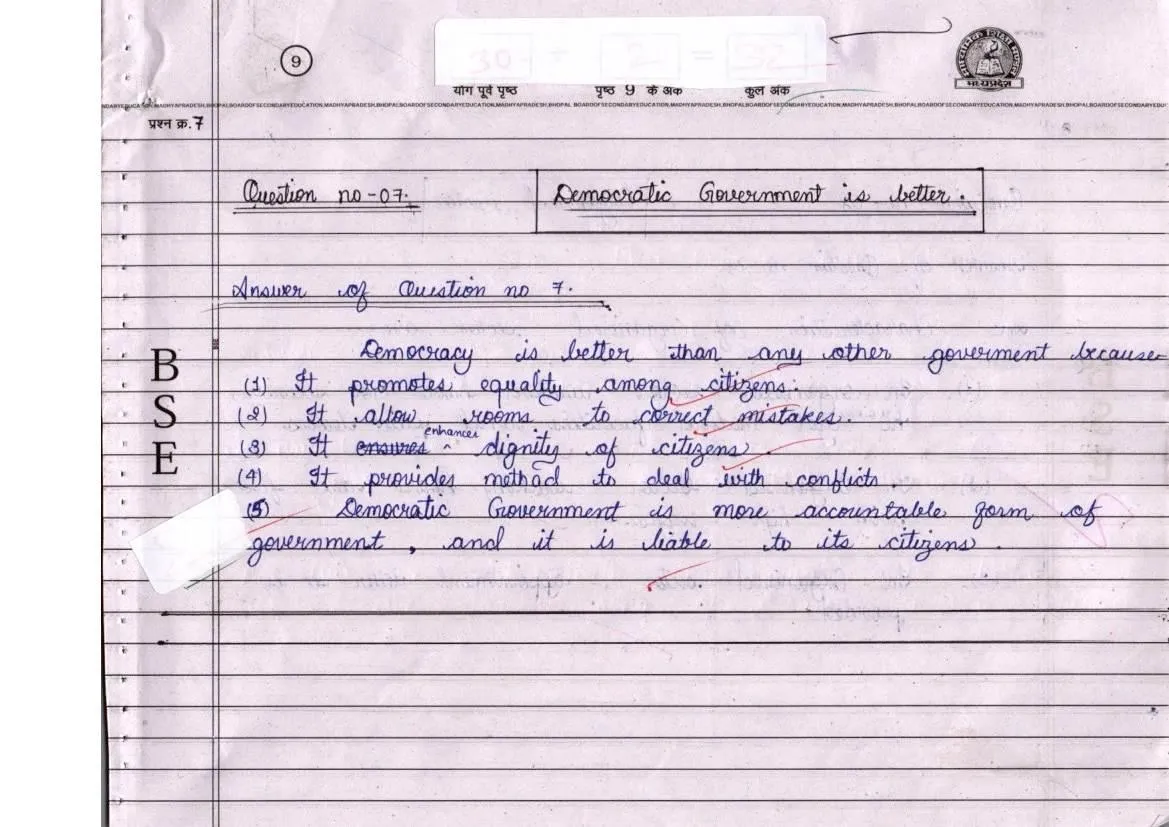 9
30 + 2 = 32
योग पूर्व पृष्ठ पृष्ठ 9 के अंक कुल अंक
मध्यप्रदेश
NDARYEDUCATION,MADHYAPRADESH,BHOPAL BOARDOFSECONDARYEDUCATION,MADHYAPRADESH,BHOPAL BOARDOFSECONDARYEDUCATION,MADHYAPRADESH,BHOPAL BOARDOFSECONDARYEDUCATION,MADHYAPRADESH,BHOPAL BOARDOFSECONDARYEDUCATION,MADHYAPRADESH,BHOPAL BOARDOFSECONDARYEDU
प्रश्न क्र. 7
Question no-07. Democratic Government is better.
Answer of Question no 7.
Democracy is better than any other goverment because
(1) It promotes equality among citizens.
(2) It allow rooms to correct mistakes.
(3) It ensures enhances dignity of citizens
(4) It provides method to deal with conflicts
(5) Democratic Government is more accountable form of
government, and it is liable to its citizens.
B
S
E